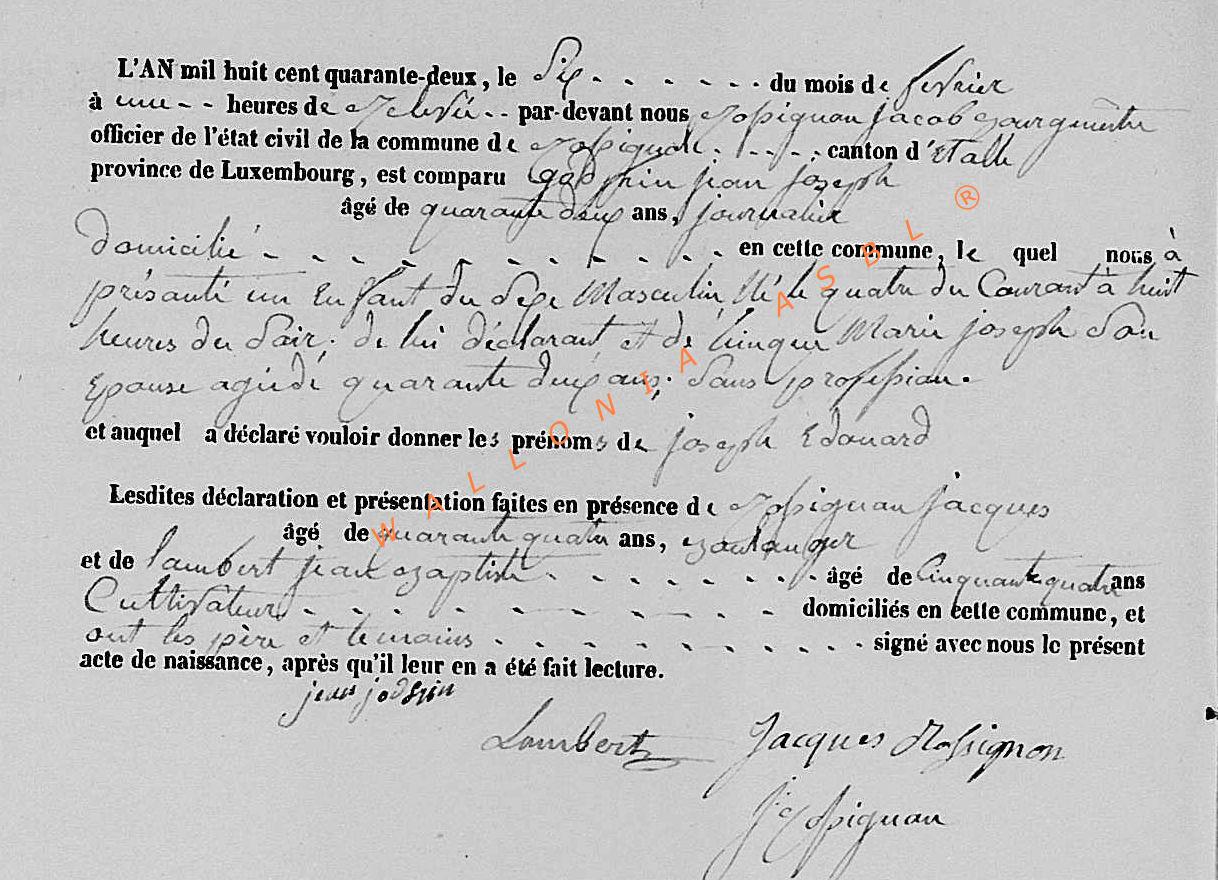 L'AN mil huit cent quarante-deux, le Six - - - - - - du mois de fevrier
à une - - heures de relevée - - par-devant nous Rossignon jacob Bourguemetre
officier de l'état civil de la commune de Rossignol - - - - - canton d'Etalle
province de Luxembourg, est comparu Godfrin jean joseph
âgé de quarante deux ans, journalier
domicilié - - - - - - - - - - - - en cette commune, le quel nous à
présanté un Enfant du Sexe Masculin, Né le quatre du Courant à huit
heures du Soir; de lui déclarant et de Marie joseph Son
Epouse agée de quarante deux ans; Sans profession.
et auquel a déclaré vouloir donner les prénoms de joseph Edouard
Lesdites déclaration et présentation faites en présence de Rossignon jacques
âgé de quarante quatre ans, Boulanger
et de lambert jean Baptiste - - - - - - - - âgé de Cinquante quatre ans
Cultivateur - - - - - - - - - domiciliés en cette commune, et
ont les père et temoins - - - - - - - - - - signé avec nous le présent
acte de naissance, après qu'il leur en a été fait lecture.
jean jodfrin
Lambert Jacques Rossignon
J Rossignon
WALLONIA ASBL ®